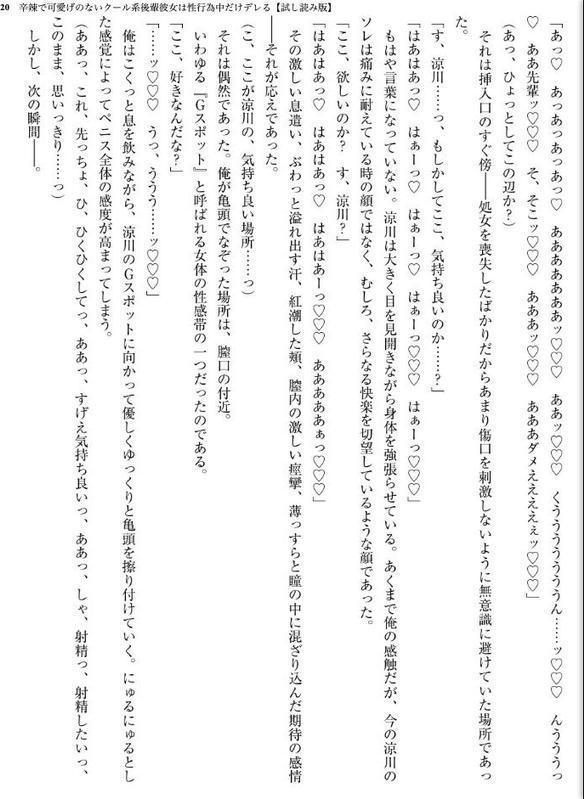 20 辛辣で可愛げのないクール系後輩彼女は性行為中だけデレる【試し読み版】
「あっ♡　あっあっあっあっ♡　ああああああぁッ♡♡♡　ああッ♡♡♡　くうううううううん……ッ♡♡♡　んうううっ
♡　ああ先輩ッ♡♡♡　そ、そこッ♡♡♡　あああッ♡♡♡　あああダメえええええぇッ♡♡♡」
(あっ、ひょっとしてこの辺か？)
それは挿入口のすぐ傍――処女を喪失したばかりだからあまり傷口を刺激しないように無意識に避けていた場所であっ
た。
「す、涼川……っ、もしかしてここ、気持ち良いのか……？」
「はあはあっ♡　はぁーっ♡　はぁーっ♡　はぁーっ♡♡♡　はぁーっ♡♡♡」
もはや言葉になっていない。涼川は大きく目を見開きながら身体を強張らせている。あくまで俺の感触だが、今の涼川の
ソレは痛みに耐えている時の顔ではなく、むしろ、さらなる快楽を切望しているような顔であった。
「ここ、欲しいのか？　す、涼川？」
「はあはあっ♡　はあはあっ♡　はあはあーっ♡♡♡　あああああぁっ♡♡♡」
その激しい息遣い、ぶわっと溢れ出す汗、紅潮した頬、膣内の激しい痙攣、薄っすらと瞳の中に混ざり込んだ期待の感情
――それが応えであった。
(こ、ここが涼川の、気持ち良い場所……っ)
それは偶然であった。俺が亀頭でなぞった場所は、膣口の付近。
いわゆる『Ｇスポット』と呼ばれる女体の性感帯の一つだったのである。
「ここ、好きなんだな？」
「……ッ♡♡♡　うっ、ううう……ッ♡♡♡」
俺はこくっと息を飲みながら、涼川のＧスポットに向かって優しくゆっくりと亀頭を擦り付けていく。にゅるにゅるとし
た感覚によってペニス全体の感度が高まってしまう。
(ああっ、これ、先っちょ、ひ、ひくひくしてっ、ああっ、すげえ気持ち良いっ、ああっ、しゃ、射精っ、射精したいっ、
このまま、思いっきり……っ)
しかし、次の瞬間――。